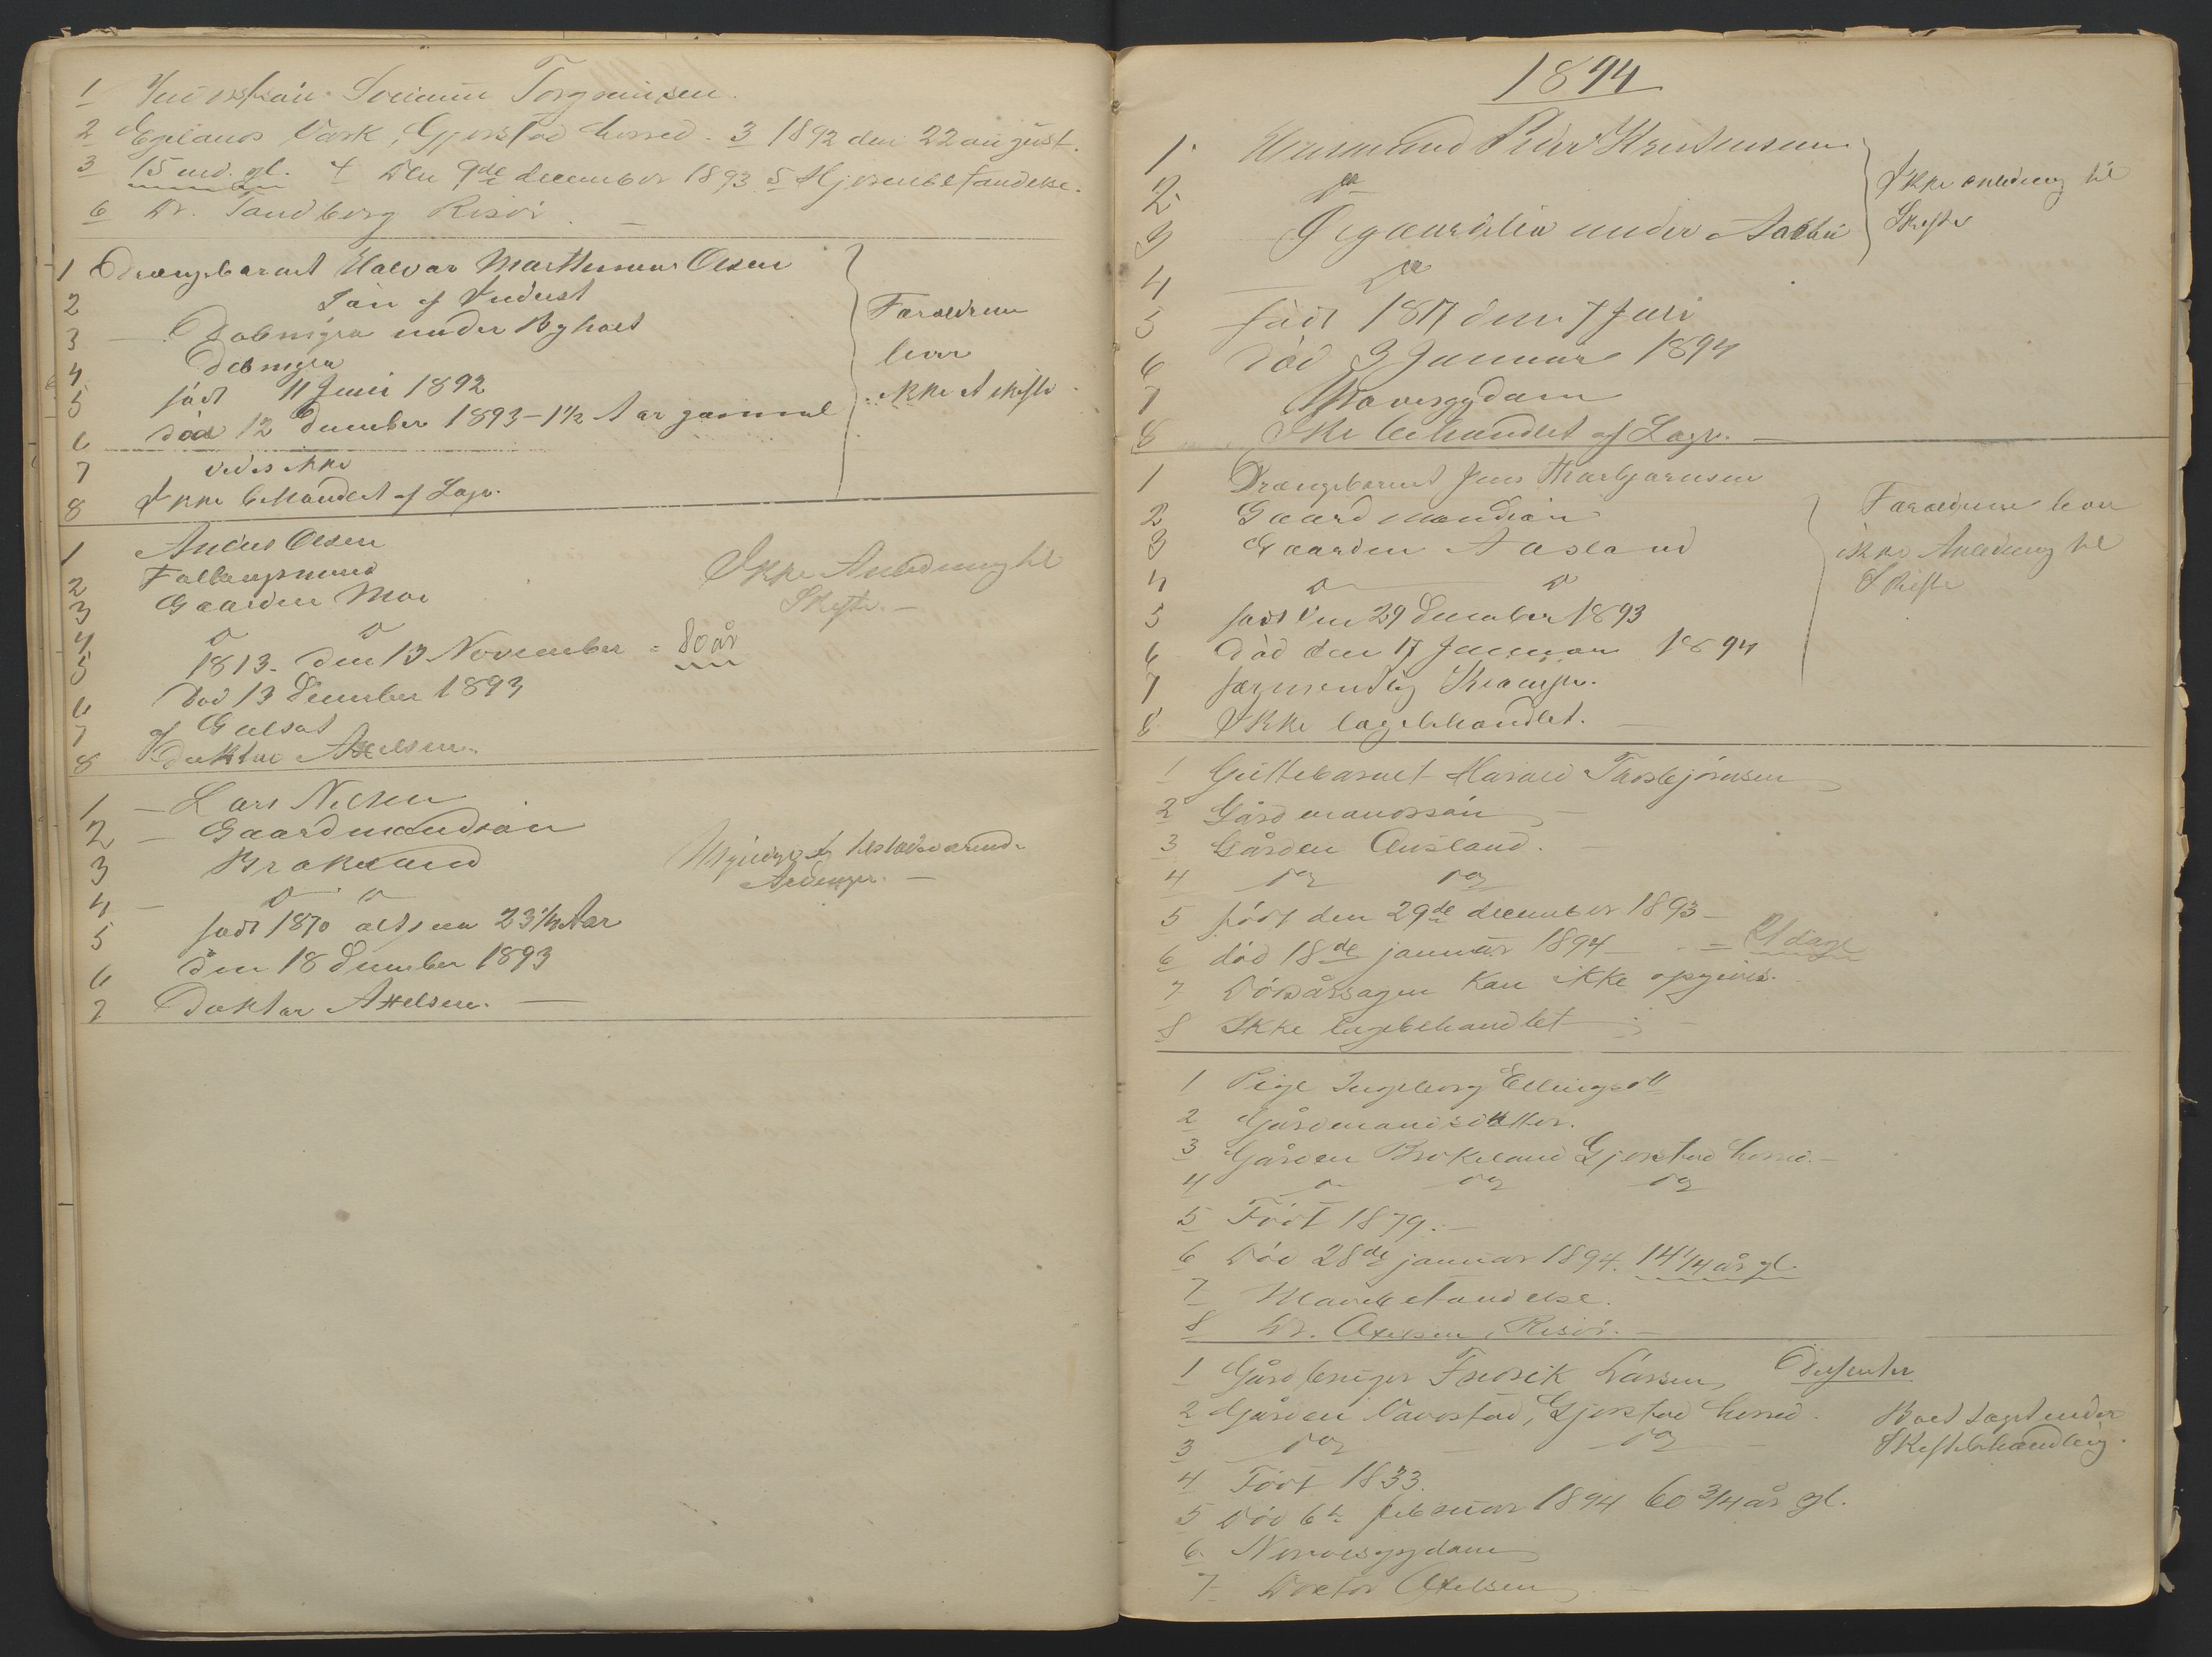 1 Torgrimsen.
2 Egelands Værk, Gjerstad herred. 3 1892 den 22 august.
3 15 md. gl. 4 Den 9de december 1893 5 Hjernebetændelse.
6 Dr. Tandberg Risör
1 Drengebarnet Halvor Marthinius Olsen
2 Søn af Inderst
3 Dalsmyra under Byholt
4 Dalsmyra
5 født 11 Juni 1892
6 død 12 December 1893 - 1½ Aar gammel
7 vides ikke
8 Ikke behandlet af Læge.
Forældrene
lever
ikke at skifte
1 Anders Olsen
2 Follaugsmand
3 Gaarden Moe
4 do do
5 1813. den 13 November = 80 år
6 Død 13 December 1893
7 af Gulsot
8 Doktor Axelsen.
Ikke Anledning til
Skifte. -
1 - Lars Nilsen
2 - Gaardmandsøn
3 Brokeland
4 - do do
5 født 1870 altsaa 23½ Aar
6 den 18 December 1893
7 Doktor Axelsen. -
Myndige og tilstedeværende
Arvinger. -
1894
1. Peder Kristensen
2 do
3 under Aasbø
4 do
5 født 1817 den 7 Juli
6 død 3 Januar 1894
7
8 Ikke behandlet af Læge. -
Ikke anledning til
Skifte
1 Drengebarnet Jens Thorbjørnsen
2 Gaardmandsøn
3 Gaarden Aasland
4 do do
5 født den 29 December 1893
6 død den 17 Januar 1894
7 formentlig Krampe.
8 Ikke lægebehandlet. -
Forældrene lever
ikke Anledning til
Skifte
1 Guttebarnet Harald Thorbjörnsen
2 Gårdmandssön -
3 Gården Ausland. -
4 do do
5 född den 29de december 1893 -
6 död 18de januar 1894 - = 21 dage
7 Dödsårsagen kan ikke opgives.
8 Ikke lægebehandlet -
1 Pige Ingeborg Ellingsdtt
2 Gårdmandsdatter.
3 Gården Brokeland Gjerstad herred. -
4 do do do
5 Född 1879. -
6 Död 28de januar 1894. 14¼ år gl.
7 Mavebetændelse.
8 Dr. Axelsen, Risör. -
1 Gårdbruger Fredrik Larsen, Dissenter
2 Gården Vævestad, Gjerstad herred.
3 do - do -
4 Född 1833.
5 Död 6te februar 1894 60¾ år gl.
6 Nervesygdom
7 Doctor Axelsen
Boet taget under
Skiftebehandling.